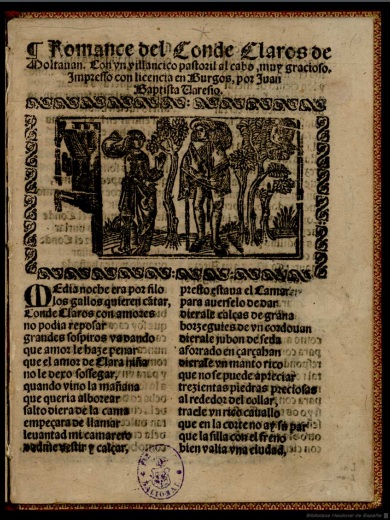 ¶ Romance del Conde Claros de
Moltauan. Con vn villancico pastoril al cabo, muy gracioso.
Impresso con licencia en Burgos, por Juan
Baptista Varesio.
MEdia noche era por filo
los gallos quieren cãtar,
Conde Claros con amores
no podia reposar
grandes sospiros va dando
que amor le haze penar
que el amor de Clara niña
no le dexo sossegar,
quando vino la mañana
que queria alborear
salto diera de la cama
empeçara de llamar
leuantad mi camarero
dadme vestir y calçar,
presto estaua el Camarero
para auerselo de dar
dierale calças de grana
borzeguies de vn cordouan
dierale jubon de seda
aforrado en çarçahan
dierale vn manto rico
que no se puede apreciar
trezientas piedras preciosas
al rededor del collar,
traele vn rico cauallo
que en la corte no ay su par
que la silla con el freno
bien valia vna ciudad,
NACIONAL
Biblioteca Nacional de España